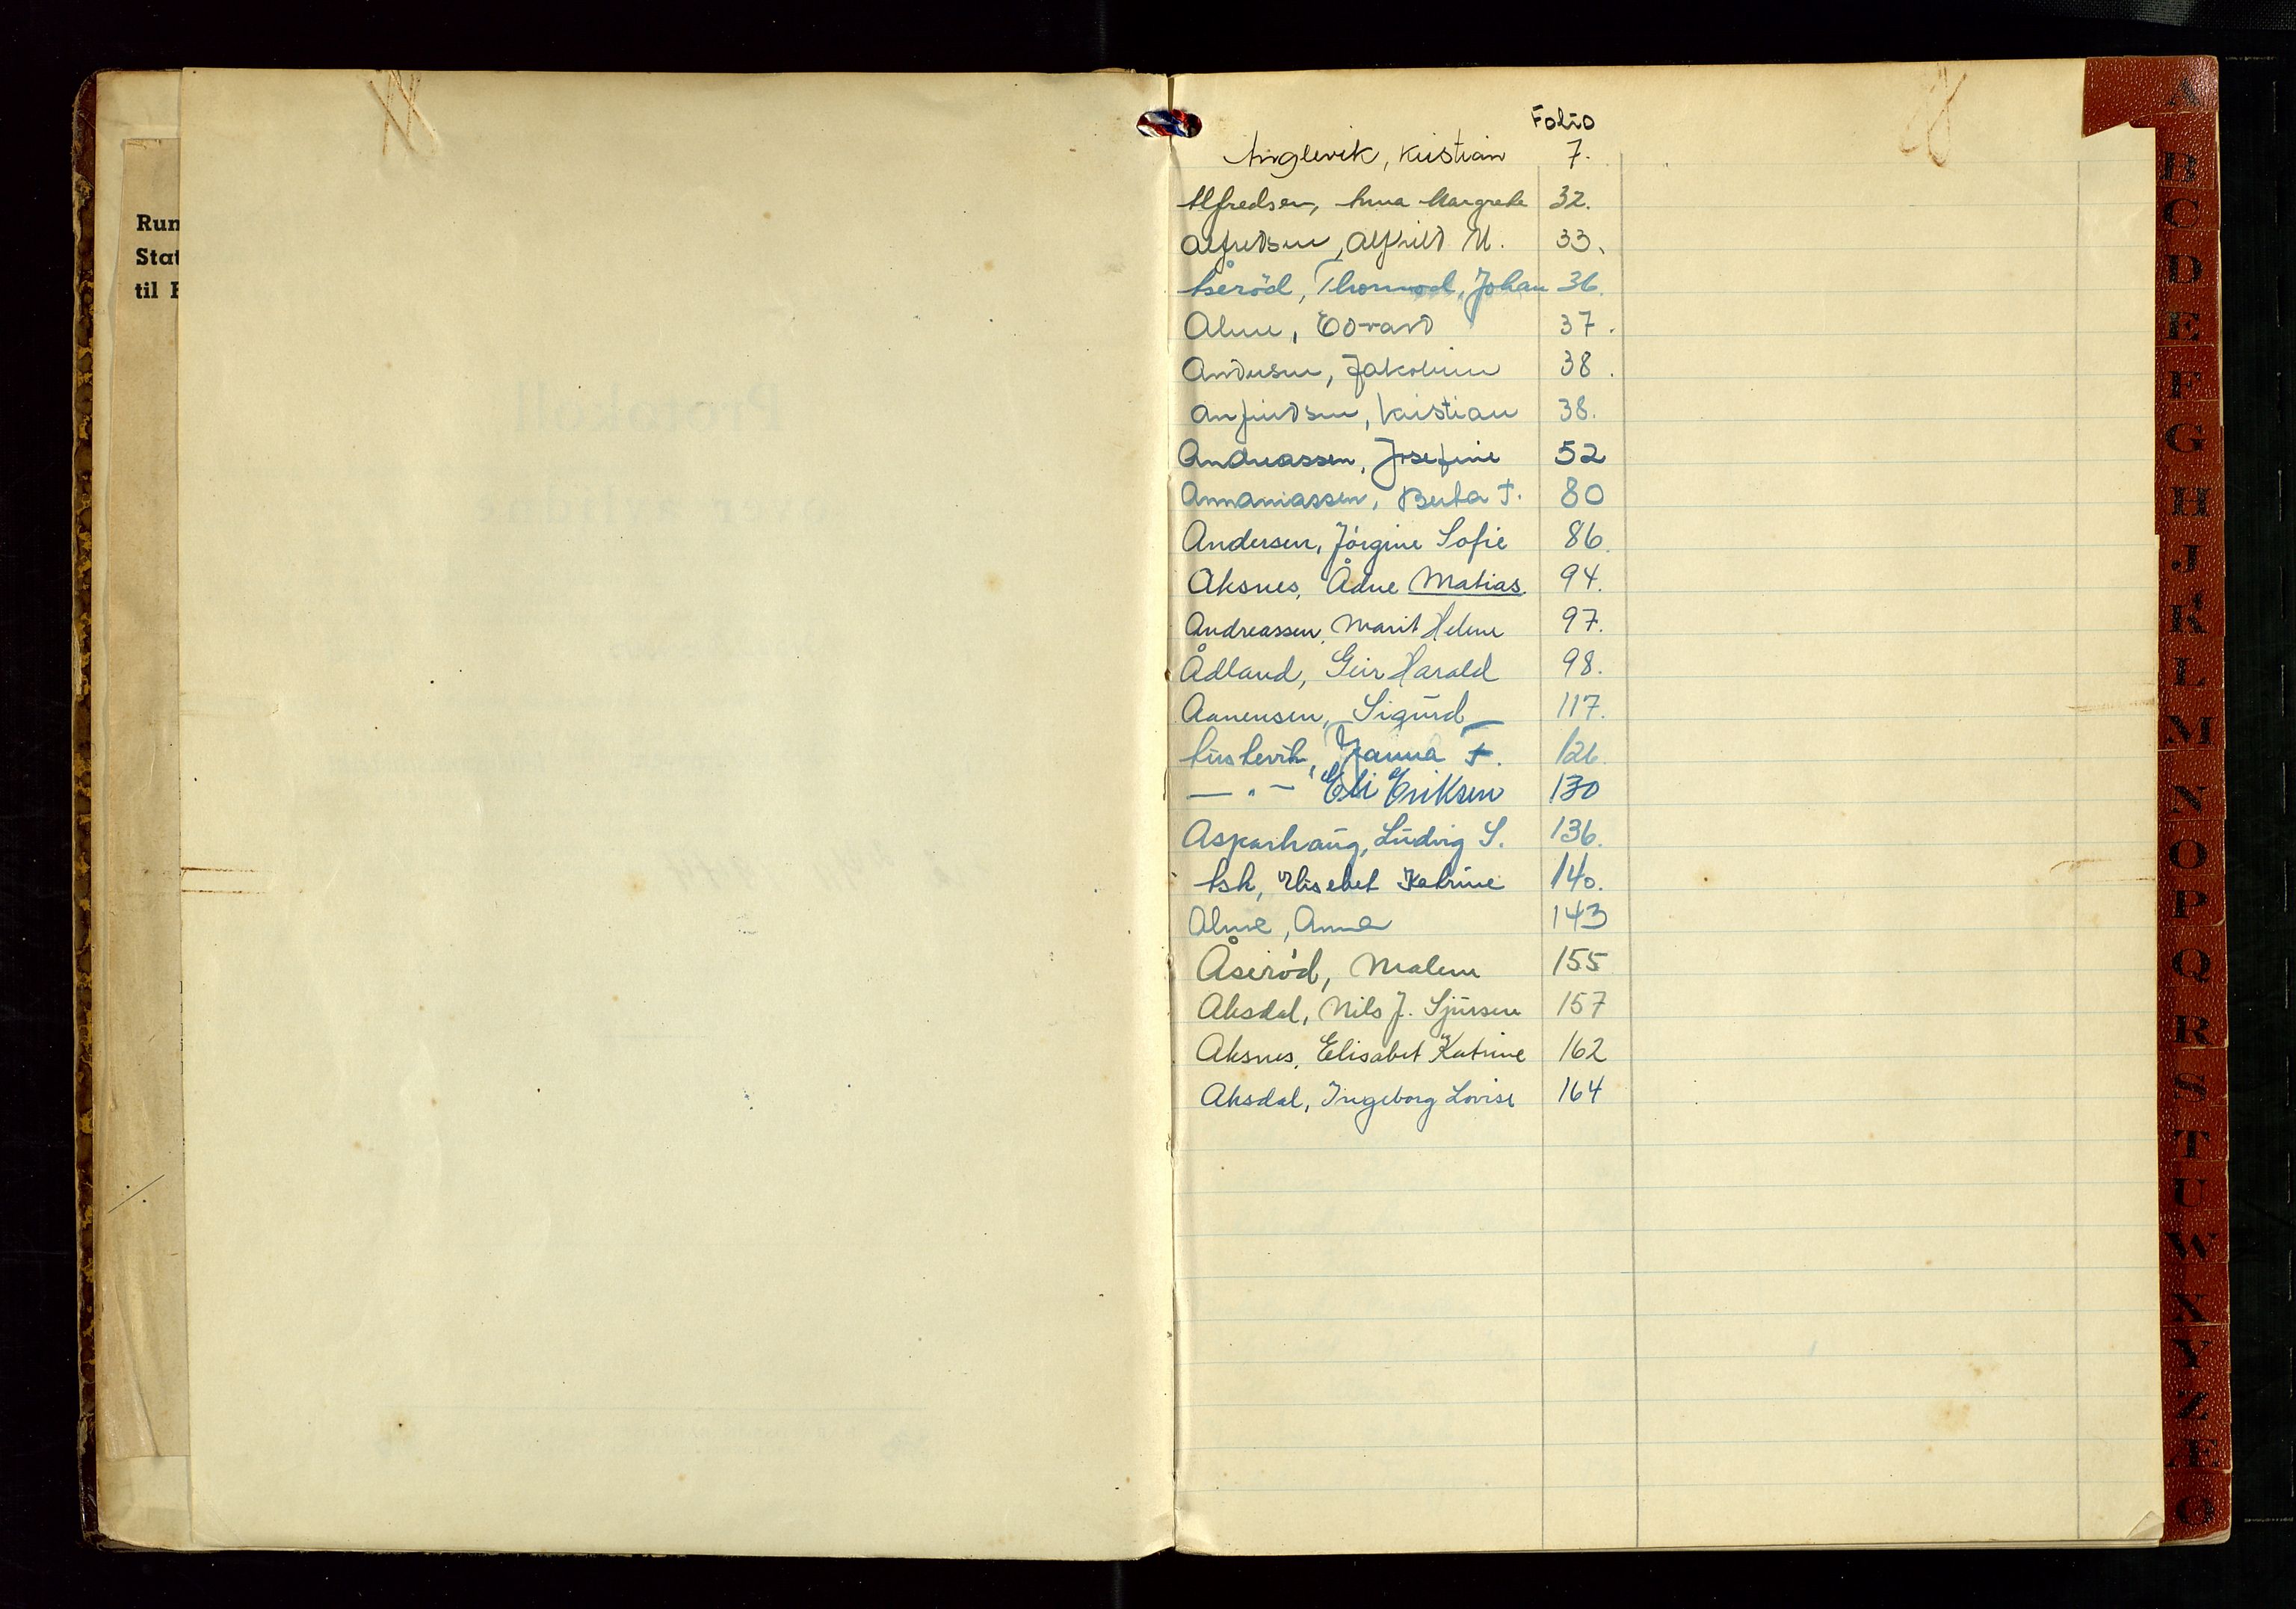 Run
Stat
til
Folio
Anglevik, Kristian 7.
Alfredsen, Anna Margrete 32.
Alfredsen, Alfrild M. 33.
Åseröd, Thormod, Johan 36.
Alme, Edvard 37.
Andersen, Jakobine 38.
Anfindsen, Kristian 38.
Andreassen, Josefine 52
Annaniassen, Berta T. 80
Andersen, Jörgine Sofie 86.
Aksnes, Ådne Matias. 94.
Andreassen, Marit Helene 97.
Ådland, Geir Harald 98.
Aanensen, Sigurd 117.
Janna F. 126.
— " — Eli Eriksen 130
Asparhaug, Ludvig S. 136.
Ask, Elisebet Katrine 140.
Alme, Anna 143
Åseröd, Malene 155
Aksdal, Nils J. Sjursen 157
Aksnes, Elisabet Katrine 162
Aksdal, Ingeborg Lovise 164
A
B
C
D
E
F
G
H
J
K
L
M
N
O
P
Q
R
S
T
U
W
X
Y
Z
Æ
Ø